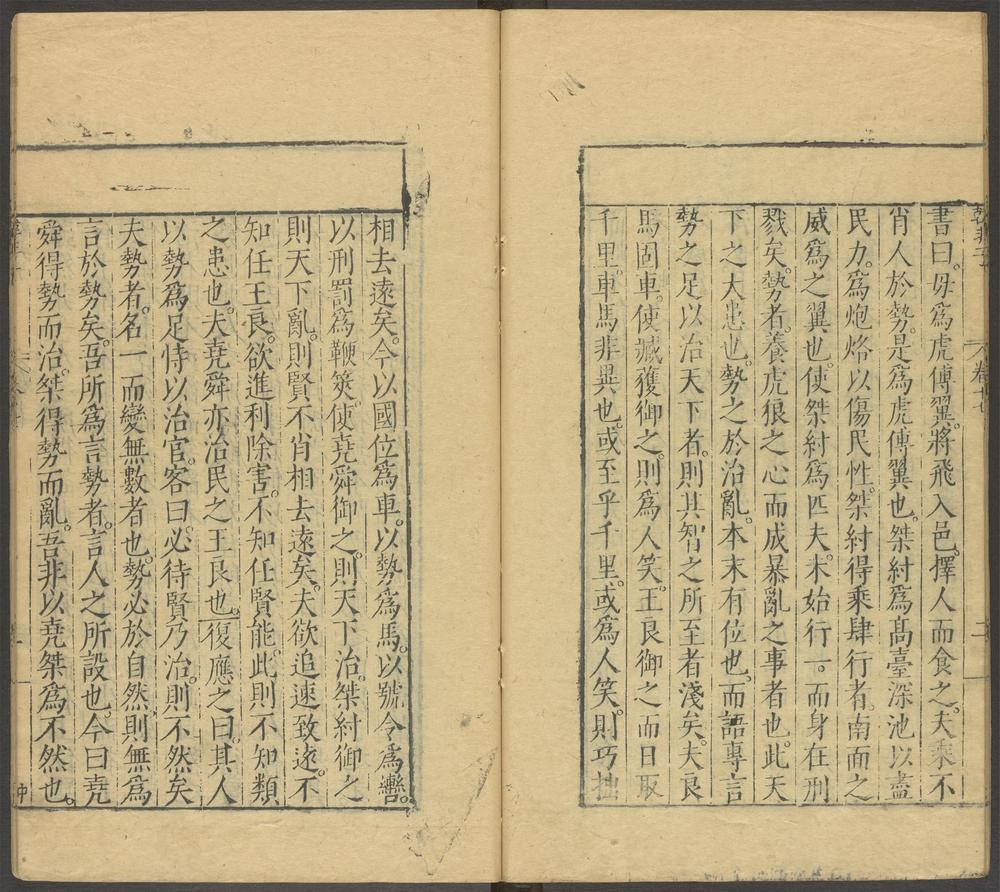 書曰。毋爲虎傅翼。將飛入邑。擇人而食之。夫乘不
肖人於勢。是爲虎傅翼也。桀紂爲高臺深池以盡
民力。爲炮烙以傷民性。桀紂得乘肆行者。南面之
威爲之翼也。使桀紂爲匹夫。未始行一。而身在刑
戮矣。勢者。養虎狼之心而成暴亂之事者也。此天
下之大患也。勢之於治亂。本末有位也。而語專言
勢之足以治天下者。則其智之所至者淺矣。夫良
馬固車。使臧獲御之。則爲人笑。王良御之而日取
千里。車馬非異也。或至乎千里。或爲人笑。則巧拙
相去遠矣。今以國位爲車。以勢爲馬。以號令爲轡。
以刑罰爲鞭筴。使堯舜御之。則天下治。桀紂御之
則天下亂。則賢不肖相去遠矣。夫欲追速致遠。不
知任王良。欲進利除害。不知任賢能。此則不知類
之患也。夫堯舜亦治民之王良也。復應之曰。其人
以勢爲足恃以治官。客曰。必待賢乃治。則不然矣
夫勢者。名一而變無數者也。勢必於自然。則無爲
言於勢矣。吾所爲言勢者。言人之所設也。今曰堯
舜得勢而治。桀得勢而亂。吾非以堯桀爲不然也。